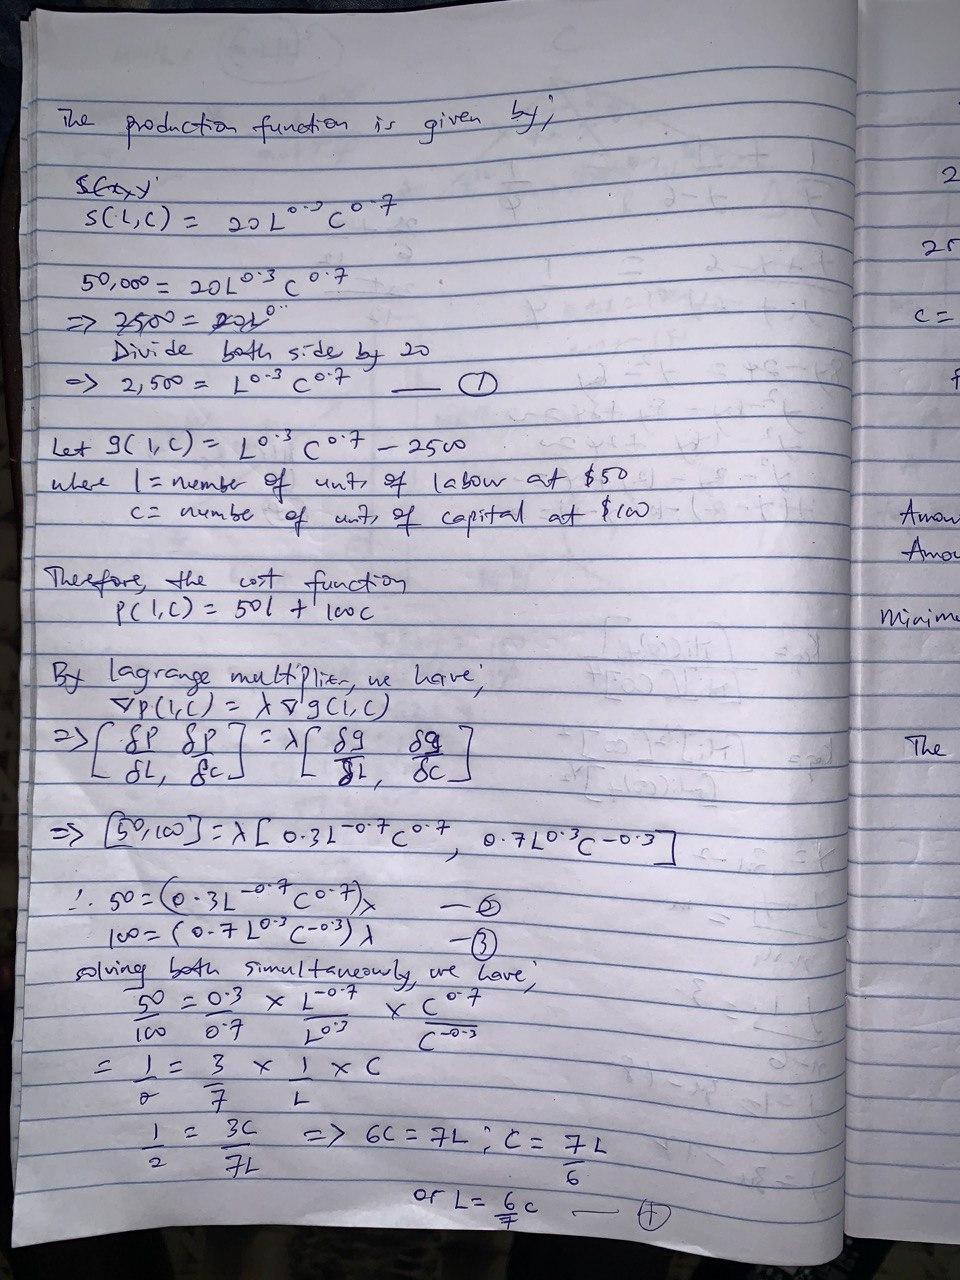 The production function is given by;
S(x,y)
S(L,C) = 20L^0.3 C^0.7
50,000 = 20L^0.3 C^0.7
=> 2500 = 20L^0.
Divide both side by 20
=> 2,500 = L^0.3 C^0.7 — (1)
Let g(l,C) = L^0.3 C^0.7 - 2500
where l = number of units of labour at $50
C = number of units of capital at $100
Therefore, the cost function
P(l,C) = 50l + 100C
By lagrange multiplier, we have;
∇P(l,C) = λ∇g(l,C)
=> [δP/δL, δP/δC] = λ[δg/δL, δg/δC]
=> [50,100] = λ[0.3L^-0.7 C^0.7, 0.7L^0.3 C^-0.3]
∴ 50 = (0.3L^-0.7 C^0.7)λ — (2)
100 = (0.7L^0.3 C^-0.3)λ — (3)
solving both simultaneously, we have;
50/100 = 0.3/0.7 × L^-0.7/L^0.3 × C^0.7/C^-0.3
= 1/2 = 3/7 × 1/L × C
1/2 = 3C/7L => 6C = 7L ; C = 7L/6
or L = 6/7 C — (4)
2
25
C =
Amou
Amou
Minimu
The